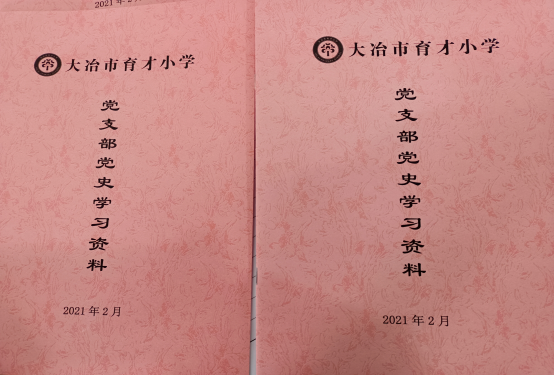 2021年2月
大冶市育才小学
党支部党史学习资料
2021年2月
大冶市育才小学
党支部党史学习资料
2021年2月